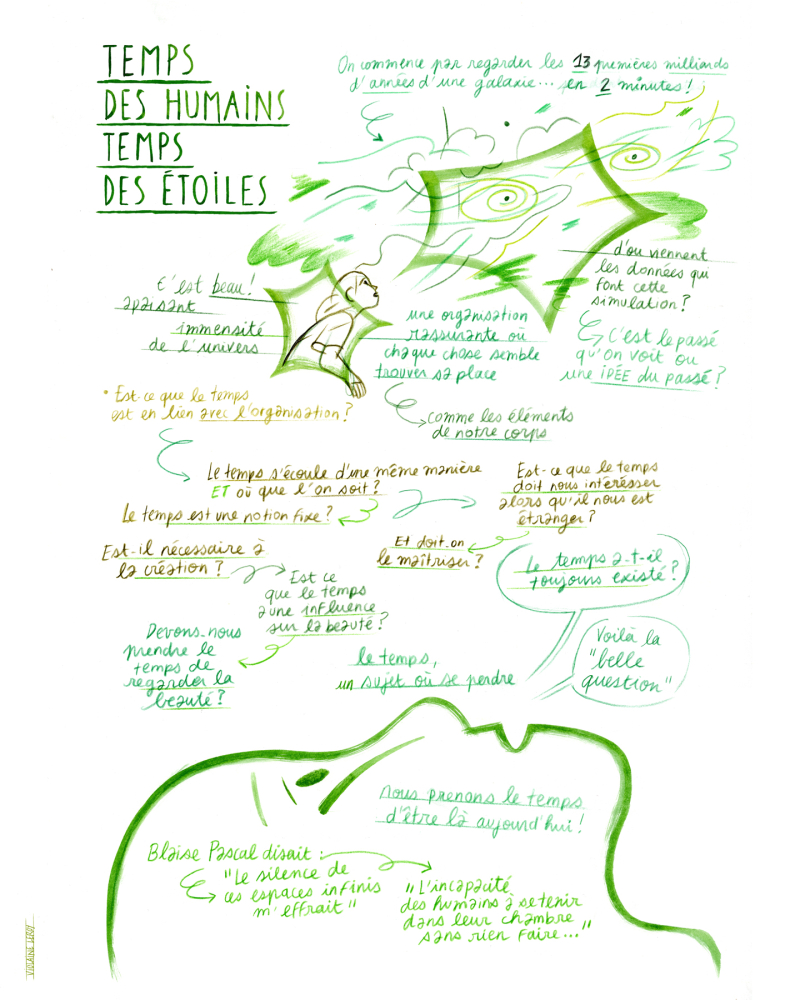 TEMPS
DES HUMAINS
TEMPS
DES ÉTOILES
On commence par regarder les 13 premières milliards
d'années d'une galaxie... en 2 minutes !
d'où viennent
les données qui
font cette
simulation ?
C'est le passé
qu'on voit ou
une iDÉE du passé ?
C'est beau !
apaisant
immensité
de l'univers
une organisation
rassurante où
chaque chose semble
trouver sa place
comme les éléments
de notre corps
* Est-ce que le temps
est en lien avec l'organisation ?
Le temps s'écoule d'une même manière
ET où que l'on soit ?
Le temps est une notion fixe ?
Est-ce que le temps
doit nous intéresser
alors qu'il nous est
étranger ?
Et doit-on
le maîtriser ?
Est-il nécessaire à
la création ?
Est ce
que le temps
a une influence
sur la beauté ?
Devons-nous
prendre le
temps de
regarder la
beauté ?
Le temps a-t-il
toujours existé ?
Voilà la
"belle
question"
le temps,
un sujet où se perdre
nous prenons le temps
d'être là aujourd'hui !
Blaise Pascal disait :
"Le silence de
ces espaces infinis
m'effrait"
"L'incapacité
des humains à se tenir
dans leur chambre
sans rien faire..."
VIOLAINE LEROY